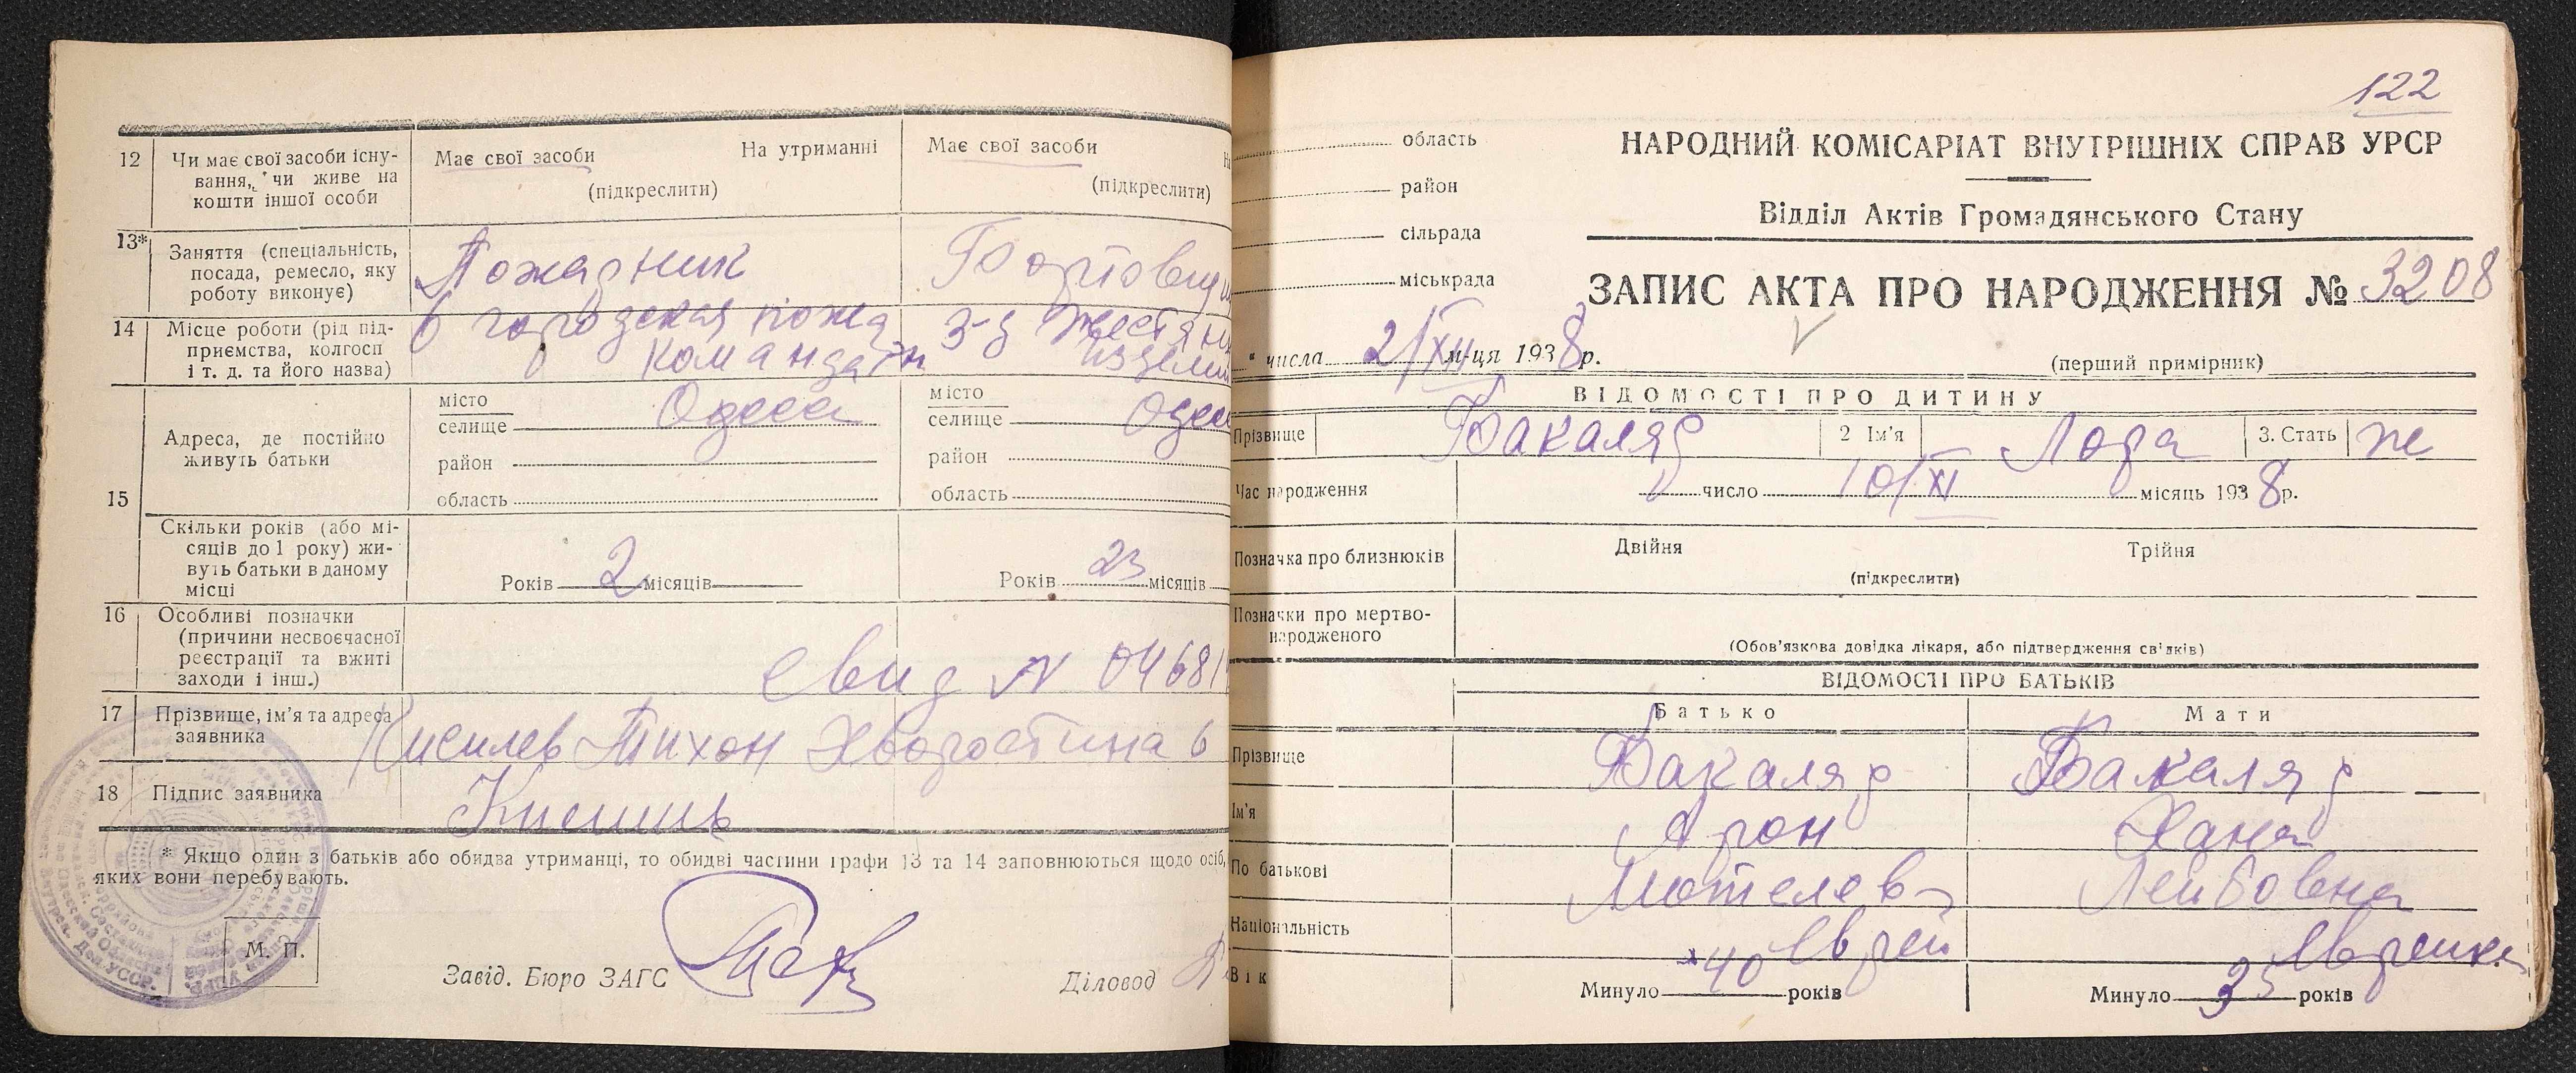 12 Чи має свої засоби існу-
вання, чи живе на
кошти іншої особи
Має свої засоби На утриманні
(підкреслити)
Має свої засоби
(підкреслити)
13* Заняття (спеціальність,
посада, ремесло, яку
роботу виконує)
Пожарник
14 Місце роботи (рід під-
приємства, колгосп
і т. д. та його назва)
6 городская
3-д
Адреса, де постійно
живуть батьки
місто
селище Одесса
район
область
місто
селище
район
область
15
Скільки років (або мі-
сяців до 1 року) жи-
вуть батьки в даному
місці
Років 2 місяців
Років 23 місяців
16 Особливі позначки
(причини несвоєчасної
реєстрації та вжиті
заходи і інш.)
Свид N 04681
17 Прізвище, ім'я та адреса
заявника
Киселев Тихон Хворостина 6
18 Підпис заявника
* Якщо один з батьків або обидва утриманці, то обидві частини графи 13 та 14 заповнюються щодо осіб,
яких вони перебувають.
М. П.
Завід. Бюро ЗАГС
Діловод
122
область
район
сільрада
міськрада
НАРОДНИЙ КОМІСАРІАТ ВНУТРІШНІХ СПРАВ УРСР
Відділ Актів Громадянського Стану
ЗАПИС АКТА ПРО НАРОДЖЕННЯ № 3208
" числа 2/XII м-ця 1938 р.
(перший примірник)
ВІДОМОСТІ ПРО ДИТИНУ
Прізвище Бакаляр 2 Ім'я Лора 3. Стать ж
Час народження число 10/XI місяць 1938 р.
Позначка про близнюків Двійня Трійня
(підкреслити)
Позначки про мертво-
народженого
(Обов'язкова довідка лікаря, або підтвердження свідків)
ВІДОМОСТІ ПРО БАТЬКІВ
Батько Мати
Прізвище Бакаляр Бакаляр
Ім'я Арон Хана
По батькові Мотелев Лейбовна
Національність Еврей Еврейка
Вік Минуло 40 років Минуло 35 років